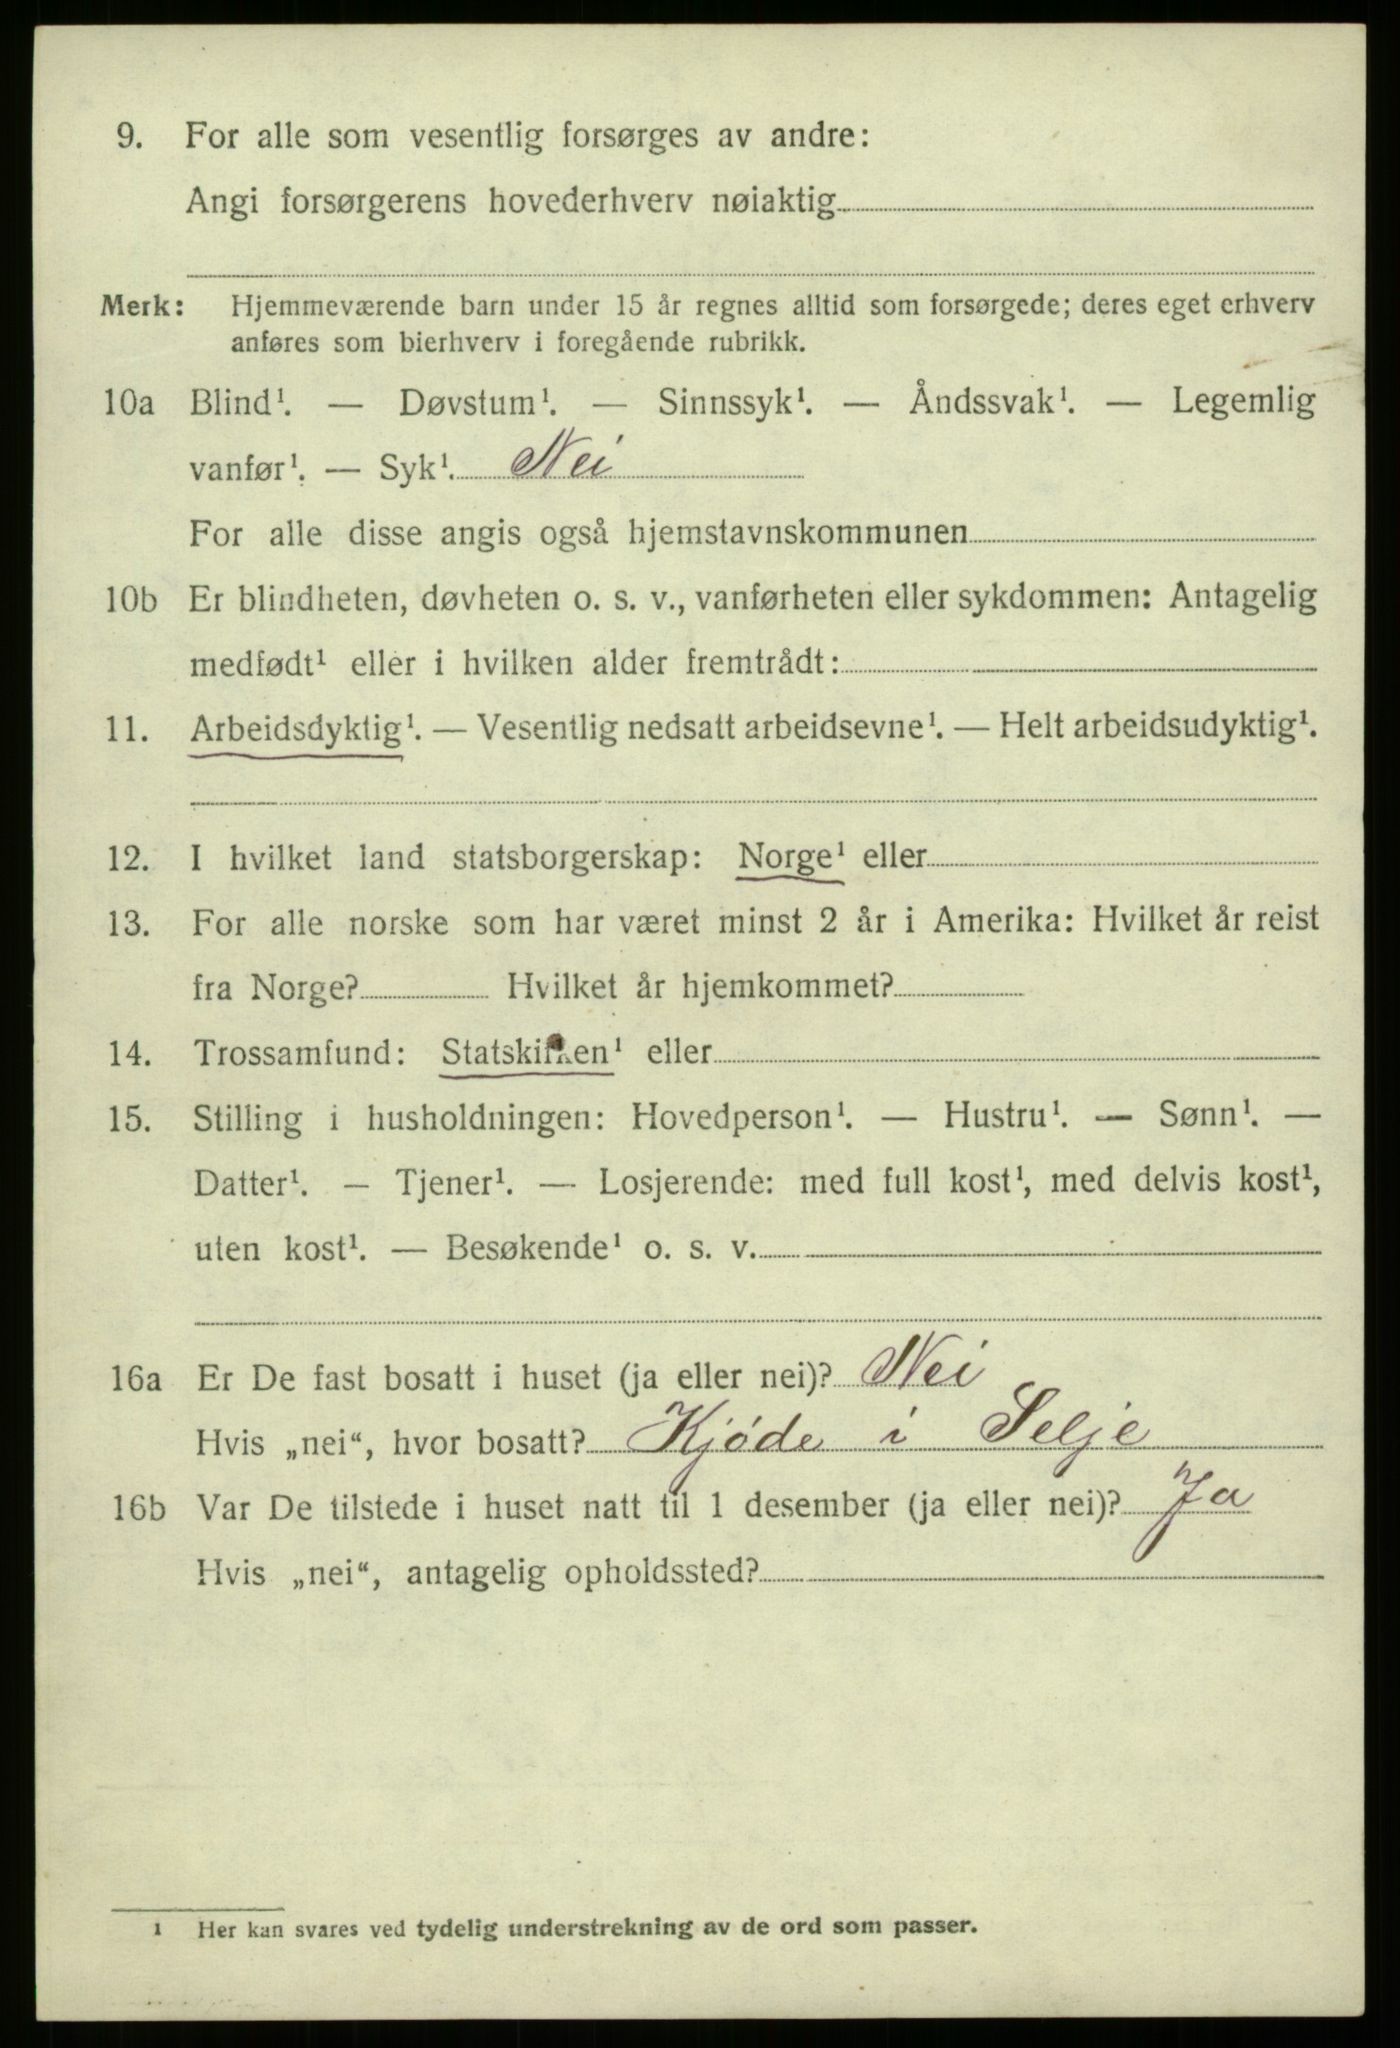 9. For alle som vesentlig forsørges av andre:
Angi forsørgerens hovederhverv nøiaktig
Merk: Hjemmeværende barn under 15 år regnes alltid som forsørgede; deres eget erhverv
anføres som bierhverv i foregående rubrikk.
10a Blind¹. — Døvstum¹. — Sinnssyk¹. — Åndssvak¹. — Legemlig
vanfør¹. — Syk¹. Nei
For alle disse angis også hjemstavnskommunen
10b Er blindheten, døvheten o. s. v., vanførheten eller sykdommen: Antagelig
medfødt¹ eller i hvilken alder fremtrådt:
11. Arbeidsdyktig¹. — Vesentlig nedsatt arbeidsevne¹. — Helt arbeidsudyktig¹.
12. I hvilket land statsborgerskap: Norge¹ eller
13. For alle norske som har været minst 2 år i Amerika: Hvilket år reist
fra Norge? Hvilket år hjemkommet?
14. Trossamfund: Statskirken¹ eller
15. Stilling i husholdningen: Hovedperson¹. — Hustru¹. — Sønn¹. —
Datter¹. — Tjener¹. — Losjerende: med full kost¹, med delvis kost¹,
uten kost¹. — Besøkende¹ o. s. v.
16a Er De fast bosatt i huset (ja eller nei)? Nei
Hvis „nei“, hvor bosatt? Kjøde i Selje
16b Var De tilstede i huset natt til 1 desember (ja eller nei)? Ja
Hvis „nei“, antagelig opholdssted?
1 Her kan svares ved tydelig understrekning av de ord som passer.